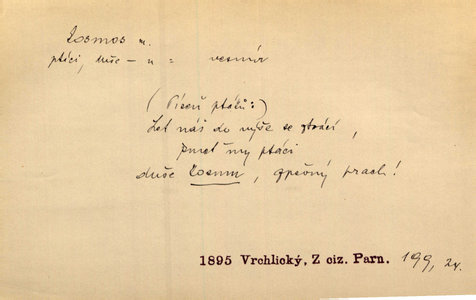 Kosmos m.
ptáci, duše – u = vesmír
(Píseň ptáků:)
Let náš do výše se ztrácí,
pouť my ptáci
duše kosmu, zpěvný prach!
1895 Vrchlický, Z ciz. Parn. 199, 2x.